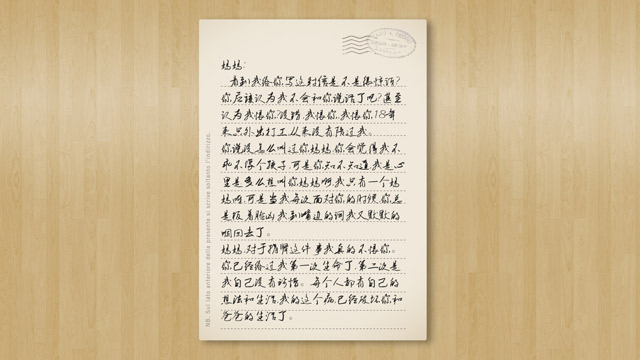 妈妈:
看到我给你写这封信是不是很惊讶?
你应该认为我不会和你说话了吧?甚至
认为我恨你?没错,我恨你,我恨你18年
来只外出打工从来没有陪过我。
你说没怎么叫过你妈妈,你会觉得我不
乖不像个孩子,可是你知不知道,我是心
里是多么想叫你妈妈啊,我只有一个妈
妈啊,可是当我每次面对你的时候你总
是板着脸凶我到嘴边的词我又默默的
咽回去了。
妈妈,对于捐肾这件事我真的不恨你。
你已经给过我第一次生命了,第二次是
我自己没有珍惜。每个人都有自己的
想法和生活,我的这个病已经破坏你和
爸爸的生活了。
NB. Sul lato anteriore della presente si scrive soltanto l'indirizzo.